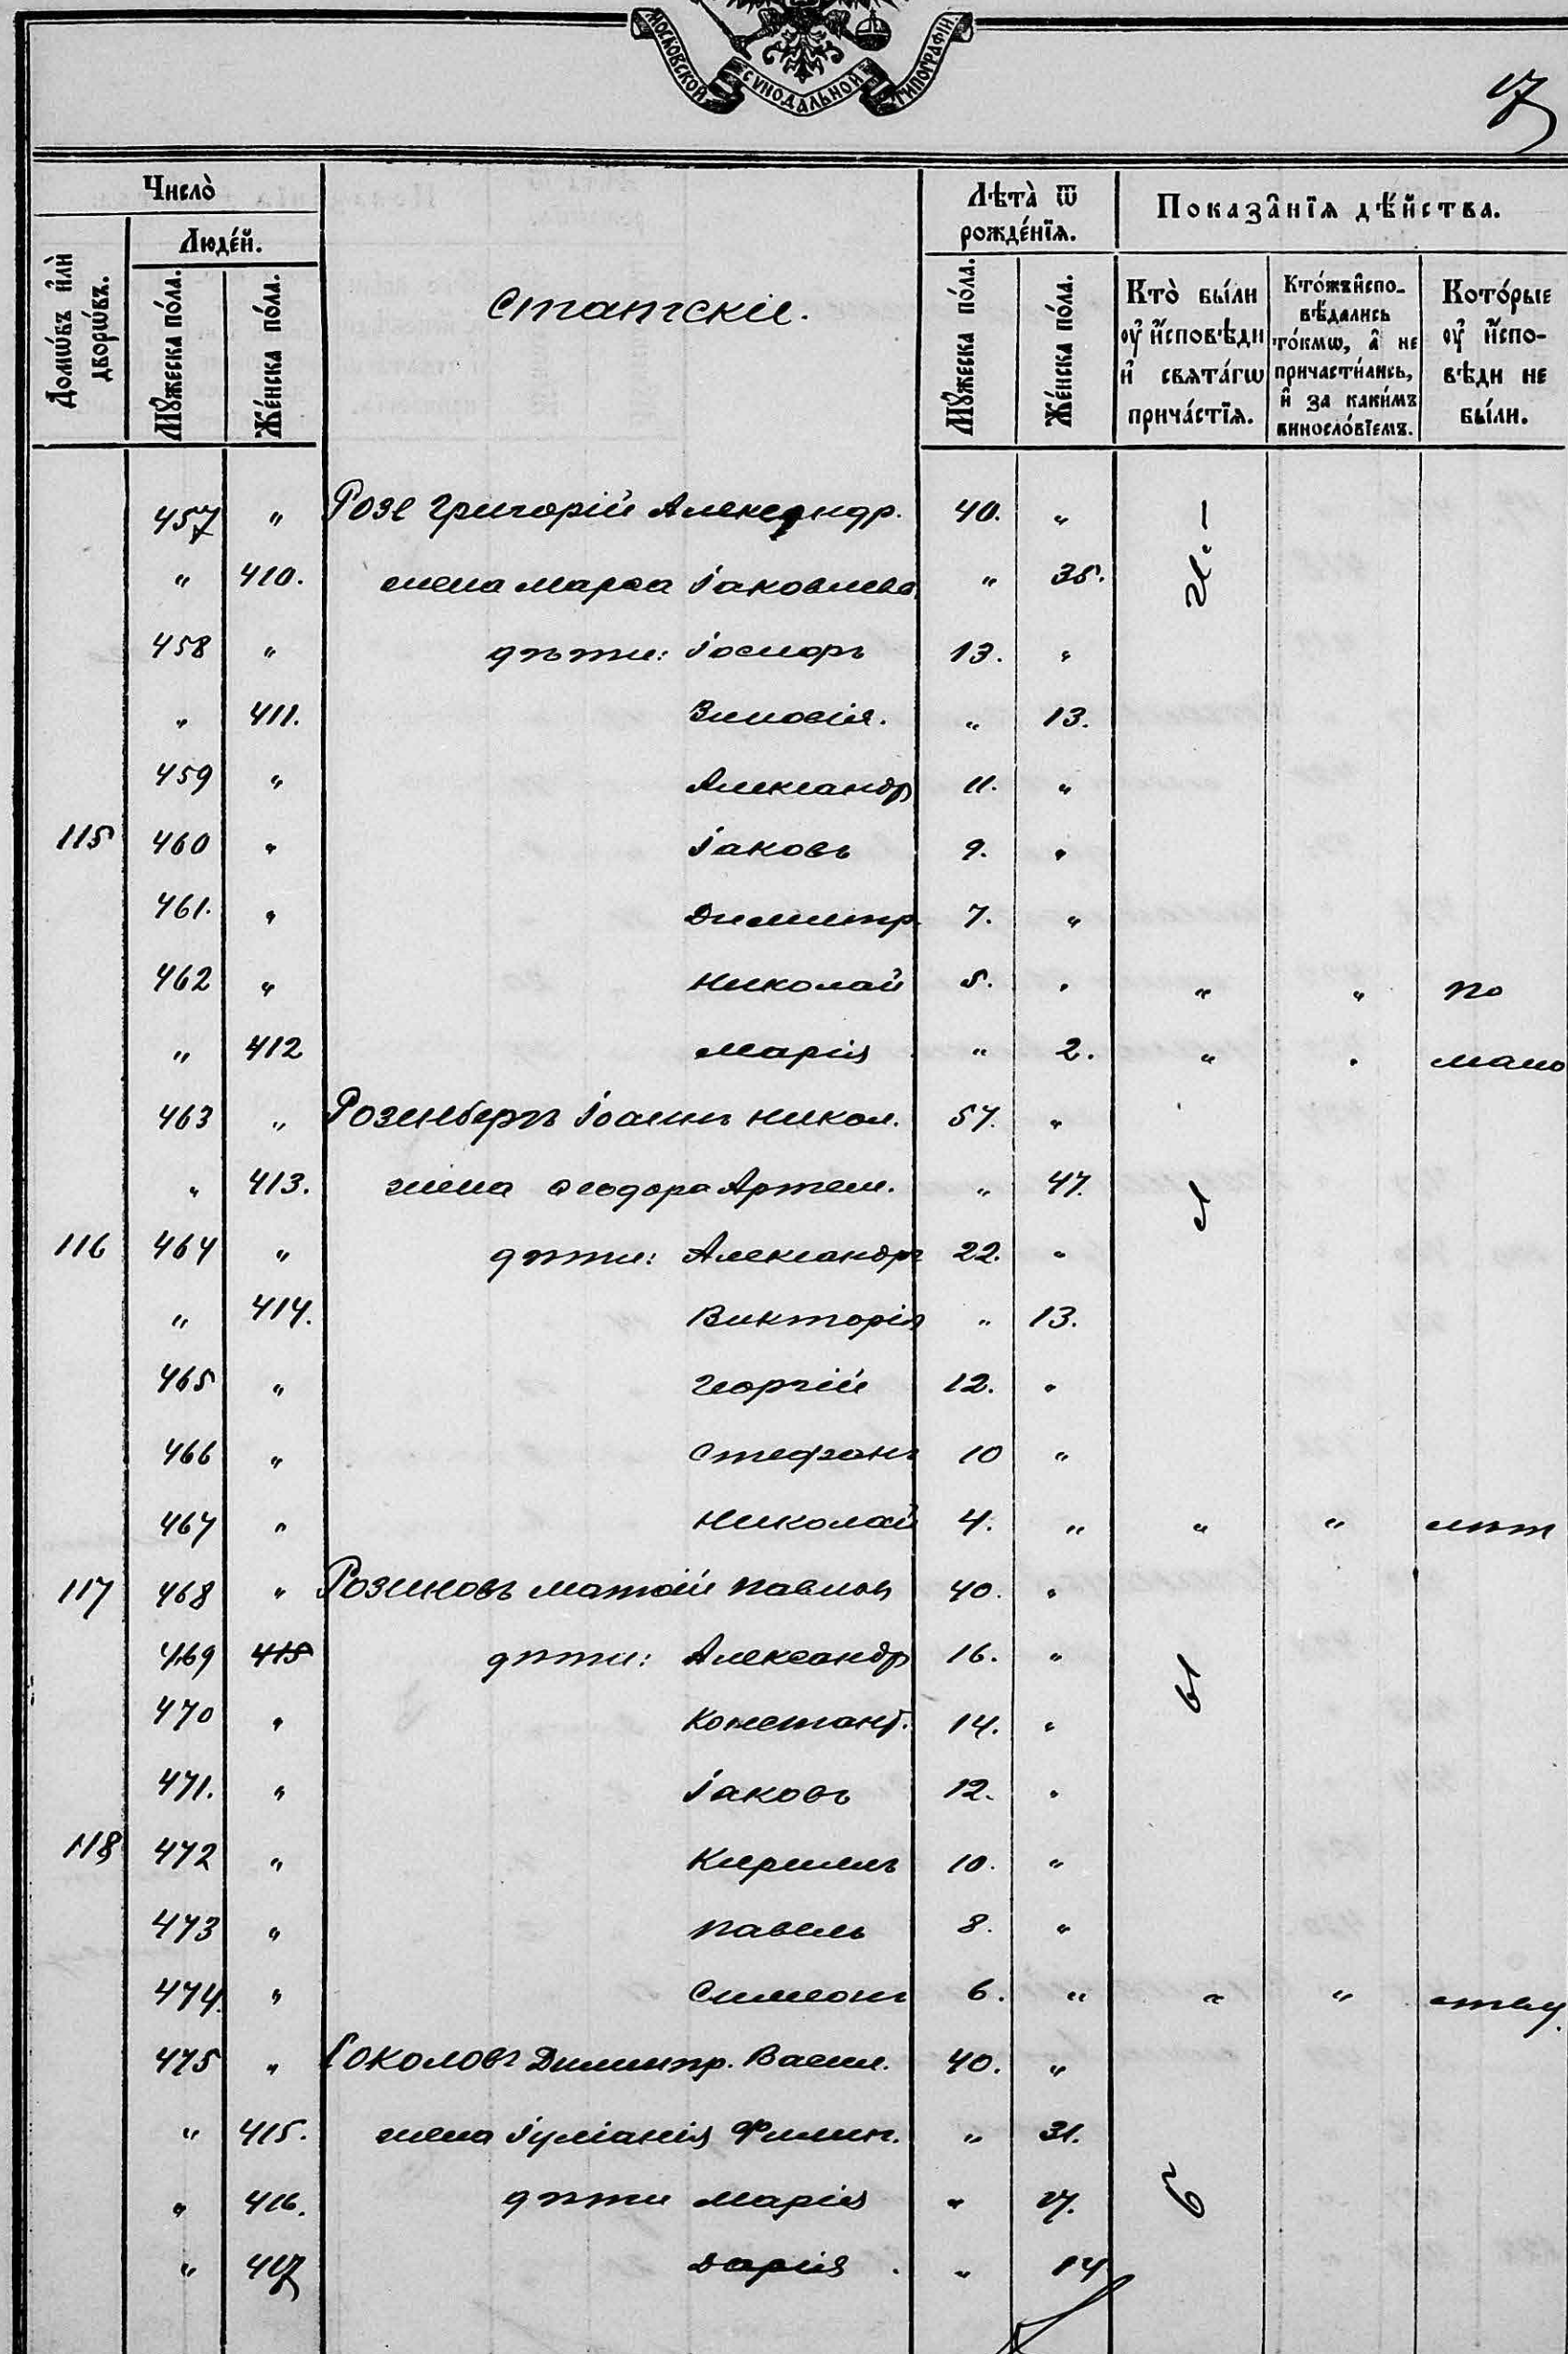 МОСКОВСКОЙ СУНОДАЛЬНОЙ ТИПОГРАФІИ.
17
Число̀
Домѡ́въ и҆лѝ дворѡ́въ.
Люде́й.
Мꙋ́жеска по́ла.
Же́нска по́ла.
Статскіе.
Лѣ́та ѿ рожде́нїѧ.
Мꙋ́жеска по́ла.
Же́нска по́ла.
Показа̂нїѧ дѣ́йства.
Кто̀ бы́ли ᲂу҆ и҆́сповѣди и҆ свѧта́гѡ прича́стїѧ.
Кто́жъ и҆сповѣ́дались то́кмѡ, а҆ не причасти́лись, и҆ за каки́мъ винсло́вїемъ.
Кото́рые ᲂу҆ и҆́сповѣди не бы́ли.
457 " Розе Григорій Александр. 40. "
" 410. жена Марѳа Іаковлева " 38.
458 " дѣти: Іосифъ 13. "
" 411. Зиновія. " 13.
459 " Александр 11. "
115 460 " Іаковъ 9. "
461. " Димитр. 7. "
462 " Николай 5. " " " по
" 412 Марія " 2. " " мало
463 " Розенбергъ Іоаннъ Никол. 57. "
" 413. жена Ѳеодора Артем. " 47.
116 464 " дѣти: Александръ 22. "
" 414. Викторія " 13.
465 " Георгій 12. "
466 " Стефанъ 10 "
467 " Николай 4. " " " лѣт
117 468 " Розиновъ Матѳій Павлов 40. "
469 415 дѣти: Александр 16. "
470 " Констант. 14. "
471. " Іаковъ 12. "
118 472 " Кириллъ 10. "
473 " Павелъ 8. "
474. " Симеонъ 6. " " " ству.
475 " Соколовъ Димитр. Васил. 40. "
" 415. жена Іуліанія Филип. " 31.
" 416. дѣти Марія " 17.
" 417 Дарія " 14